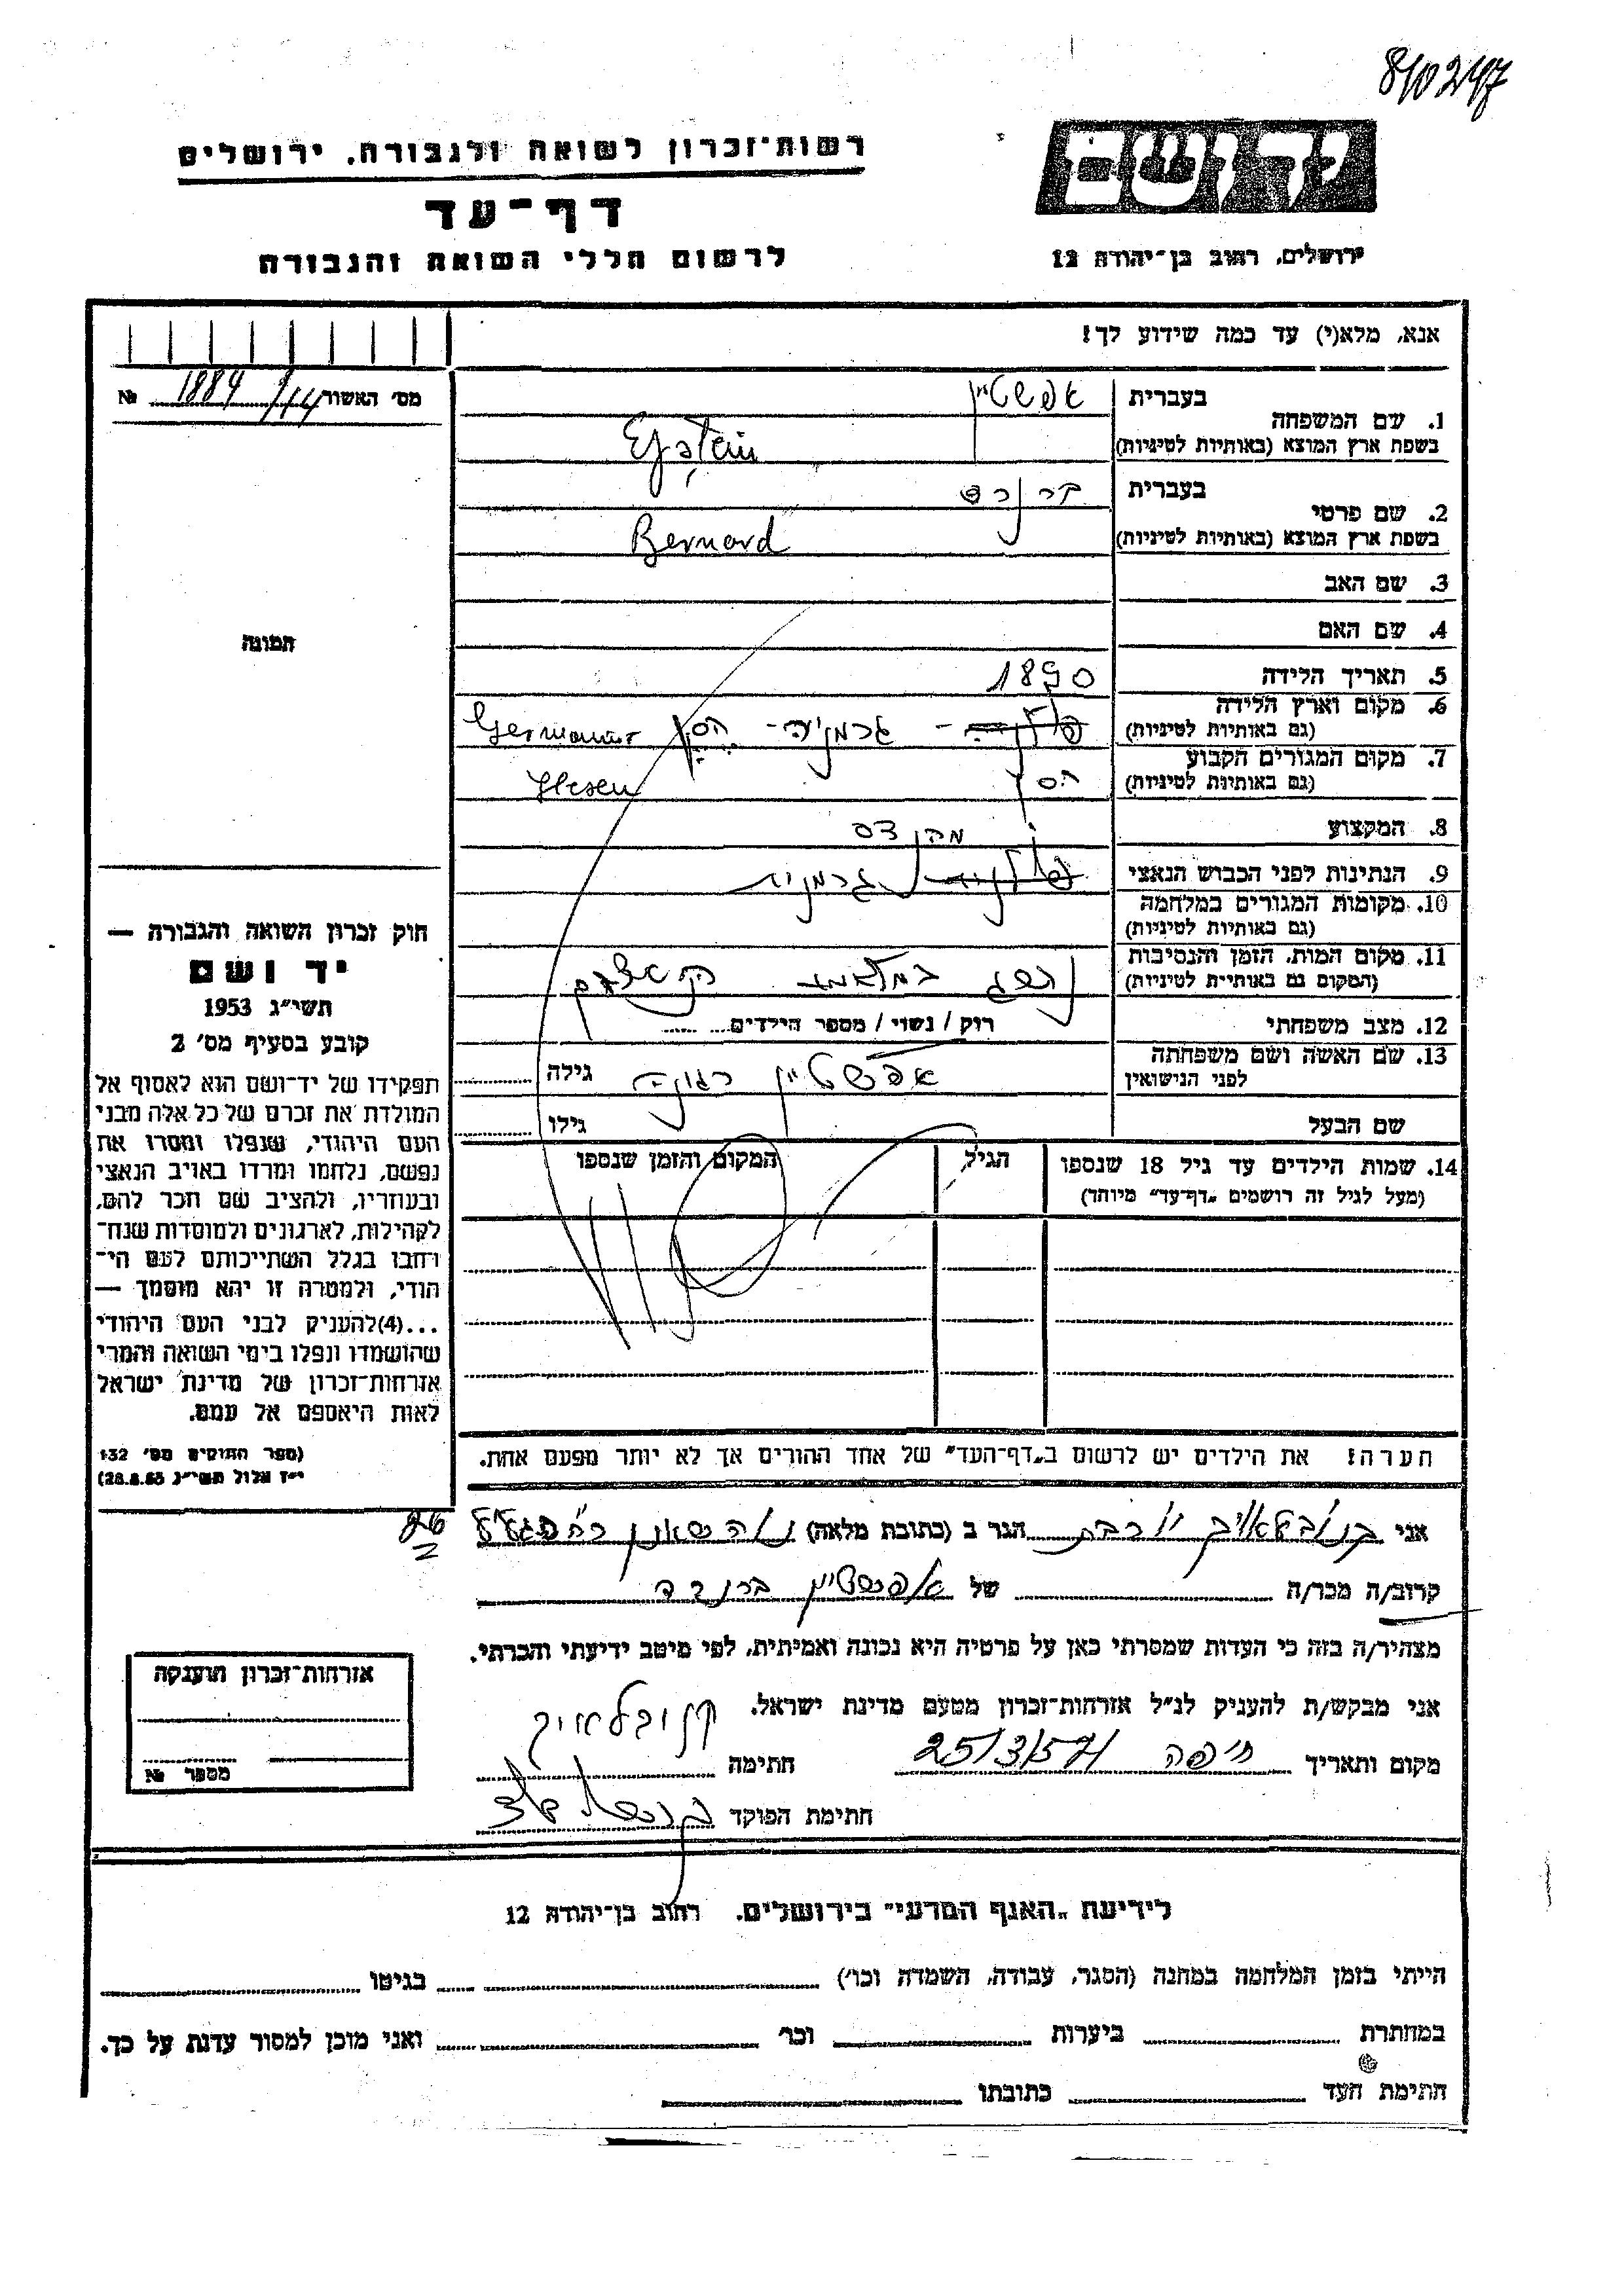 810247
יד ושם
רשות־זכרון לשואה ולגבורה, ירושלים
דף־עד
לרשום חללי השואה והגבורה
ירושלים, רחוב בן־יהודה 12
אנא, מלא(י) עד כמה שידוע לך!
מס׳ האשור 1884 №
בעברית אפשטיין
1. שם המשפחה
בשפת ארץ המוצא (באותיות לטיניות) Epstein
בעברית
2. שם פרטי
בשפת ארץ המוצא (באותיות לטיניות) Bernard
3. שם האב
4. שם האם
תמונה
5. תאריך הלידה 1890
6. מקום וארץ הלידה
(גם באותיות לטיניות) פולניה - גרמניה - הסן
7. מקום המגורים הקבוע
(גם באותיות לטיניות) הסן Hesen
8. המקצוע מהנדס
9. הנתינות לפני הכבוש הנאצי פולנית גרמנית
10. מקומות המגורים במלחמה
(גם באותיות לטיניות)
11. מקום המות, הזמן והנסיבות
(המקום גם באותיית לטיניות)
12. מצב משפחתי רוק / נשוי / מספר הילדים
13. שם האשה ושם משפחתה
לפני הנישואין אפשטיין גילה
שם הבעל גילו
14. שמות הילדים עד גיל 18 שנספו הגיל המקום והזמן שנספו
(מעל לגיל זה רושמים „דף־עד״ מיוחד)
חוק זכרון השואה והגבורה —
יד ושם
תשי״ג 1953
קובע בסעיף מס׳ 2
תפקידו של יד־ושם הוא לאסוף אל
המולדת את זכרם של כל אלה מבני
העם היהודי, שנפלו ומסרו את
נפשם, נלחמו ומרדו באויב הנאצי
ובעוזריו, ולהציב שם וזכר להם,
לקהילות, לארגונים ולמוסדות שנח־
רחבו בגלל השתייכותם לעם הי־
הודי, ולמטרה זו יהא מוסמך —
...(4)להעניק לבני העם היהודי
שהושמדו ונפלו בימי השואה והמרי
אזרחות־זכרון של מדינת ישראל
לאות היאספם אל עמם.
(ספר החוקים מס׳ 132
י״ז אלול תשי״ג 28.8.53)
הערה! את הילדים יש לרשום ב„דף־העד״ של אחד ההורים אך לא יותר מפעם אחת.
אני הגר ב (כתובת מלאה)
קרוב/ה מכר/ה של אפשטיין ברנרד
מצהיר/ה בזה כי העדות שמסרתי כאן על פרטיה היא נכונה ואמיתית, לפי מיטב ידיעתי והכרתי.
אני מבקש/ת להעניק לנ״ל אזרחות־זכרון מטעם מדינת ישראל.
מקום ותאריך חיפה 25/3/57 חתימה
חתימת הפוקד
אזרחות־זכרון הוענקה
מספר №
לידיעת „האגף המדעי״ בירושלים, רחוב בן־יהודה 12
הייתי בזמן המלחמה במחנה (הסגר, עבודה, השמדה וכו׳) בגיטו
במחתרת ביערות וכו׳ ואני מוכן למסור עדות על כך.
חתימת העד כתובתו